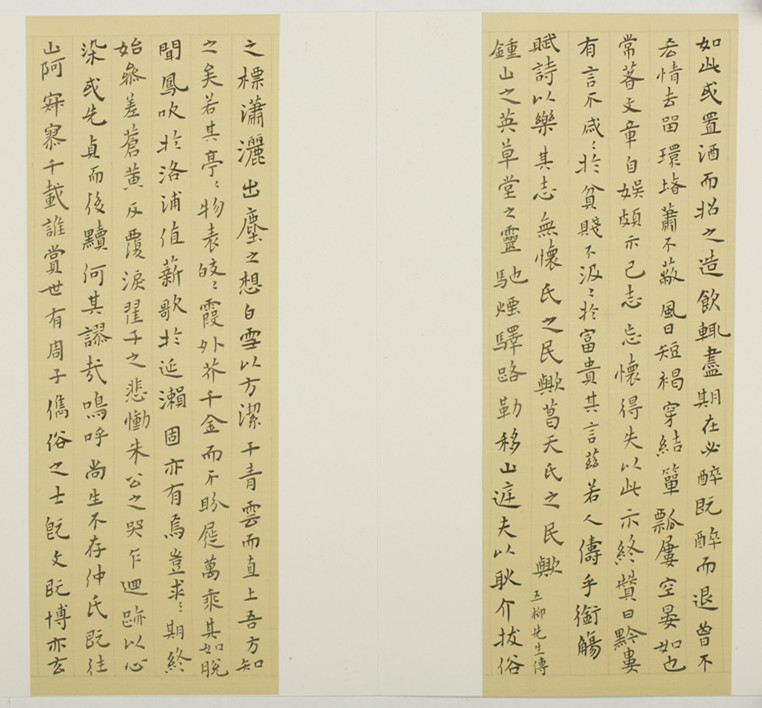 如此或置酒而招之造飲輒盡期在必醉既醉而退曾不
吝情去留環堵蕭不蔽風日短褐穿結簞瓢屢空晏如也
常著文章自娛頗示己志忘懷得失以此示終贊曰黔婁
有言不戚〻於貧賤不汲〻於富貴其言茲若人儔乎銜觴
賦詩以樂其志無懷氏之民歟葛天氏之民歟 五柳先生傳
鍾山之英草堂之靈馳煙驛路勒移山庭夫以耿介拔俗
之標瀟灑出塵之想白雪以方潔干青雲而直上吾方知
之矣若其亭〻物表皎〻霞外芥千金而不盼屣萬乘其如脫
聞鳳吹於洛浦值薪歌於延瀨固亦有焉豈求〻期終
始參差蒼黃反覆淚翟子之悲慟朱公之哭乍迴跡以心
染或先貞而後黷何其謬哉嗚呼尚生不存仲氏既往
山阿寂寥千載誰賞世有周子儁俗之士既文既博亦玄